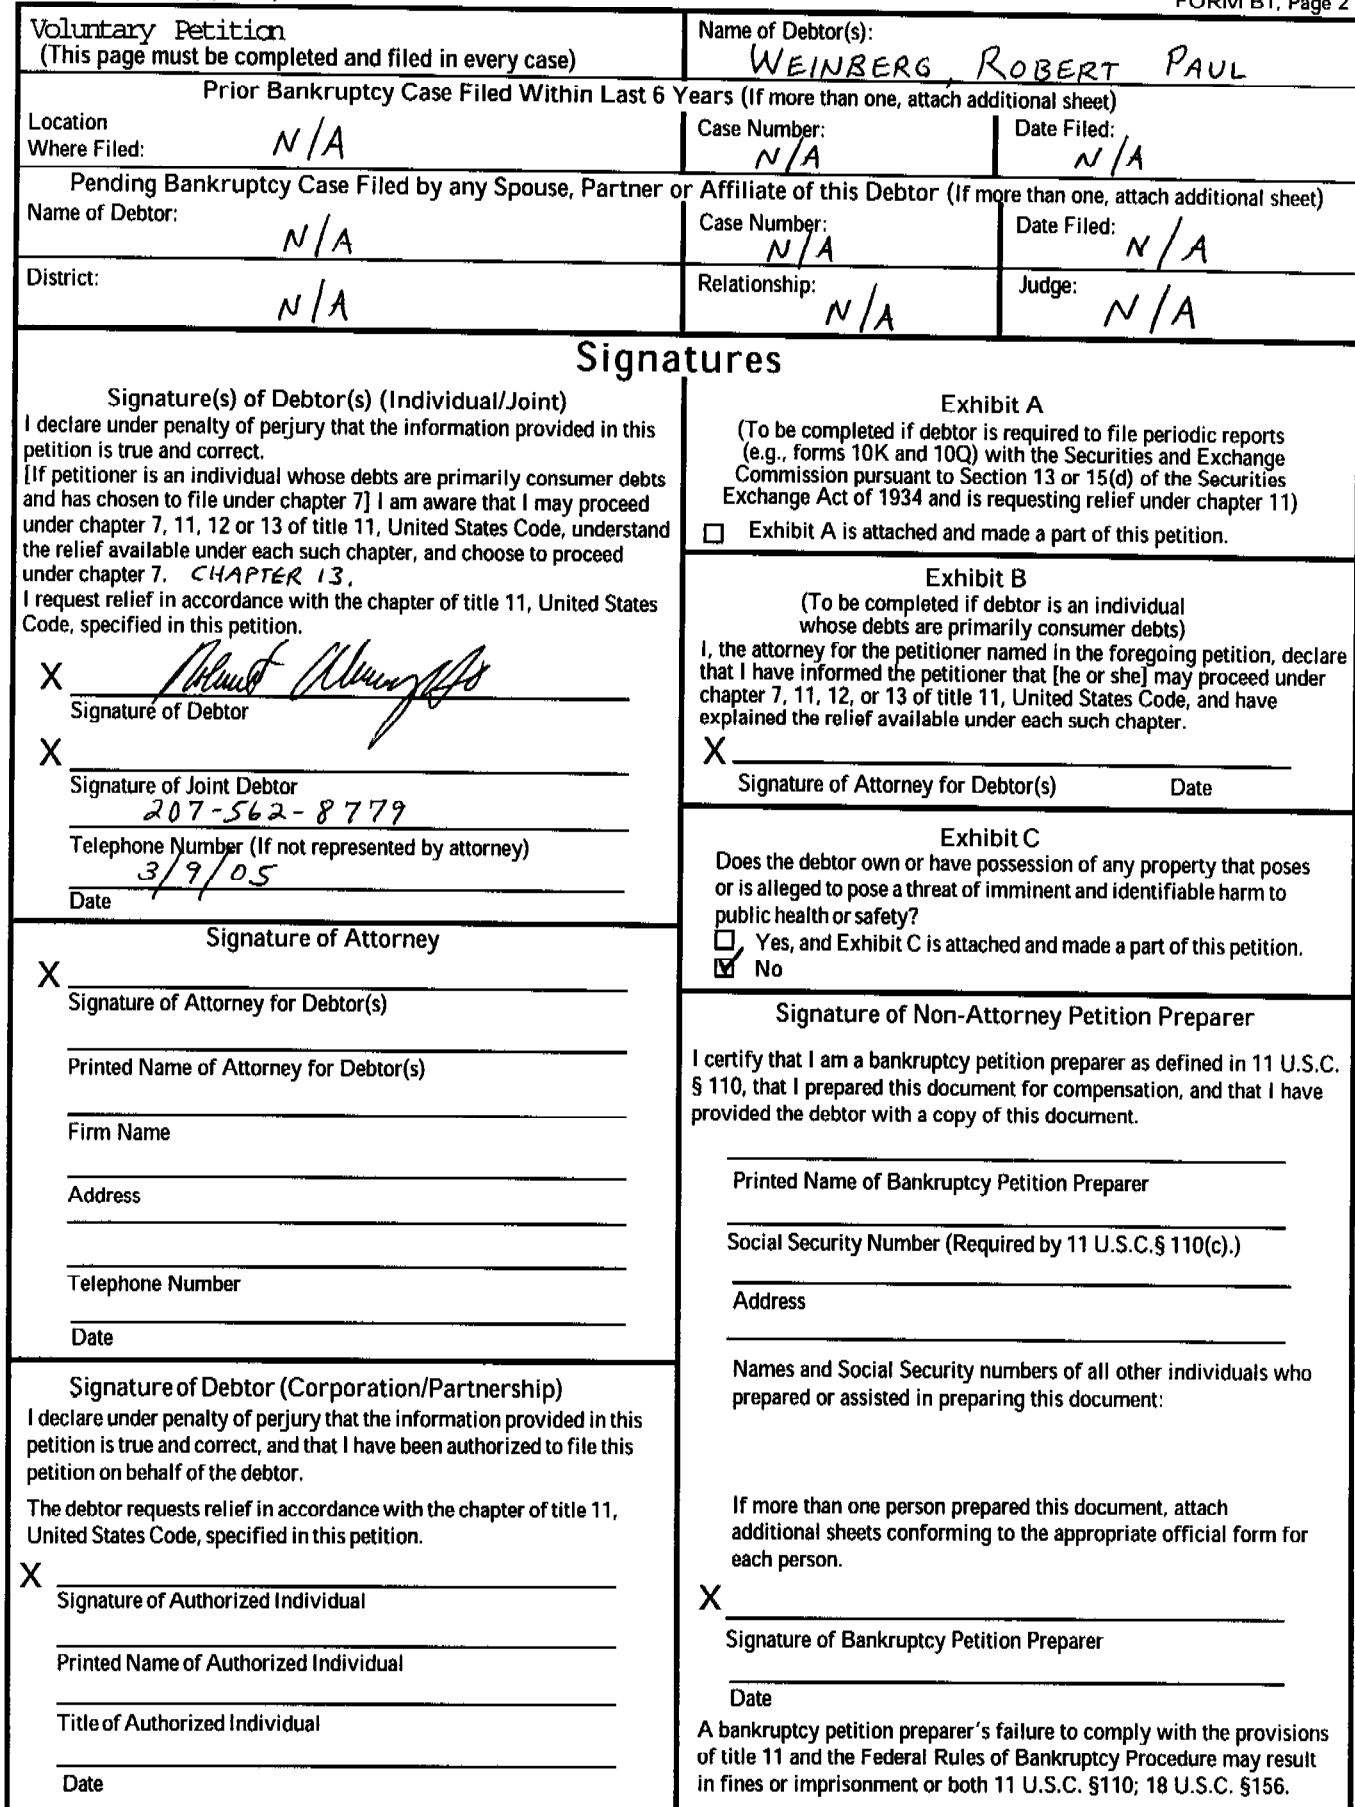 FORM B1, Page 2
Voluntary Petition
(This page must be completed and filed in every case)
Name of Debtor(s):
WEINBERG, ROBERT PAUL
Prior Bankruptcy Case Filed Within Last 6 Years (If more than one, attach additional sheet)
Location
Where Filed: N/A
Case Number:
N/A
Date Filed:
N/A
Pending Bankruptcy Case Filed by any Spouse, Partner or Affiliate of this Debtor (If more than one, attach additional sheet)
Name of Debtor:
N/A
Case Number:
N/A
Date Filed: N/A
District:
N/A
Relationship:
N/A
Judge:
N/A
Signatures
Signature(s) of Debtor(s) (Individual/Joint)
I declare under penalty of perjury that the information provided in this
petition is true and correct.
[If petitioner is an individual whose debts are primarily consumer debts
and has chosen to file under chapter 7] I am aware that I may proceed
under chapter 7, 11, 12 or 13 of title 11, United States Code, understand
the relief available under each such chapter, and choose to proceed
under chapter 7. CHAPTER 13.
I request relief in accordance with the chapter of title 11, United States
Code, specified in this petition.
X
Signature of Debtor
X
Signature of Joint Debtor
207-562-8779
Telephone Number (If not represented by attorney)
3/9/05
Date
Signature of Attorney
X
Signature of Attorney for Debtor(s)
Printed Name of Attorney for Debtor(s)
Firm Name
Address
Telephone Number
Date
Signature of Debtor (Corporation/Partnership)
I declare under penalty of perjury that the information provided in this
petition is true and correct, and that I have been authorized to file this
petition on behalf of the debtor.
The debtor requests relief in accordance with the chapter of title 11,
United States Code, specified in this petition.
X
Signature of Authorized Individual
Printed Name of Authorized Individual
Title of Authorized Individual
Date
Exhibit A
(To be completed if debtor is required to file periodic reports
(e.g., forms 10K and 10Q) with the Securities and Exchange
Commission pursuant to Section 13 or 15(d) of the Securities
Exchange Act of 1934 and is requesting relief under chapter 11)
Exhibit A is attached and made a part of this petition.
Exhibit B
(To be completed if debtor is an individual
whose debts are primarily consumer debts)
I, the attorney for the petitioner named in the foregoing petition, declare
that I have informed the petitioner that [he or she] may proceed under
chapter 7, 11, 12, or 13 of title 11, United States Code, and have
explained the relief available under each such chapter.
X
Signature of Attorney for Debtor(s) Date
Exhibit C
Does the debtor own or have possession of any property that poses
or is alleged to pose a threat of imminent and identifiable harm to
public health or safety?
Yes, and Exhibit C is attached and made a part of this petition.
No
Signature of Non-Attorney Petition Preparer
I certify that I am a bankruptcy petition preparer as defined in 11 U.S.C.
§ 110, that I prepared this document for compensation, and that I have
provided the debtor with a copy of this document.
Printed Name of Bankruptcy Petition Preparer
Social Security Number (Required by 11 U.S.C.§ 110(c).)
Address
Names and Social Security numbers of all other individuals who
prepared or assisted in preparing this document:
If more than one person prepared this document, attach
additional sheets conforming to the appropriate official form for
each person.
X
Signature of Bankruptcy Petition Preparer
Date
A bankruptcy petition preparer's failure to comply with the provisions
of title 11 and the Federal Rules of Bankruptcy Procedure may result
in fines or imprisonment or both 11 U.S.C. §110; 18 U.S.C. §156.